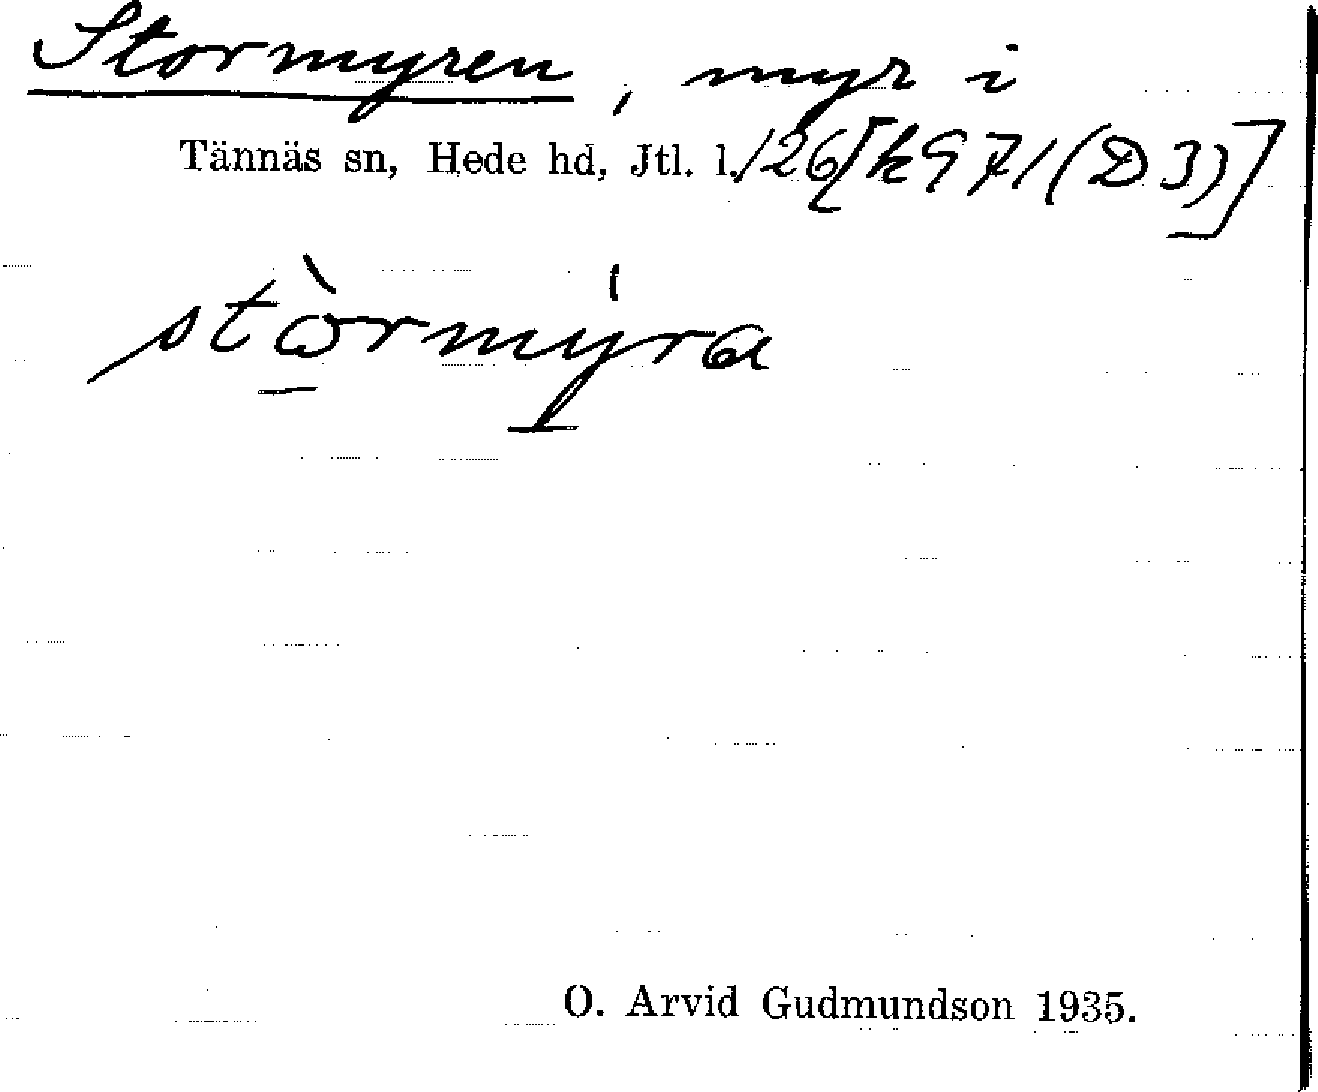 Stormyren, myr i
Tännäs sn, Hede hd, Jtl. l. /26 [k971 (D3)]
stòrmýra
O. Arvid Gudmundson 1935.